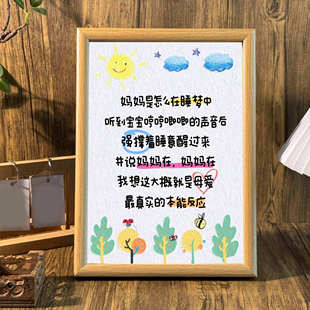 妈妈是怎么在睡梦中
听到宝宝哼哼唧唧的声音后
强撑着睡意醒过来
并说妈妈在，妈妈在
我想这大概就是母爱
最真实的本能反应